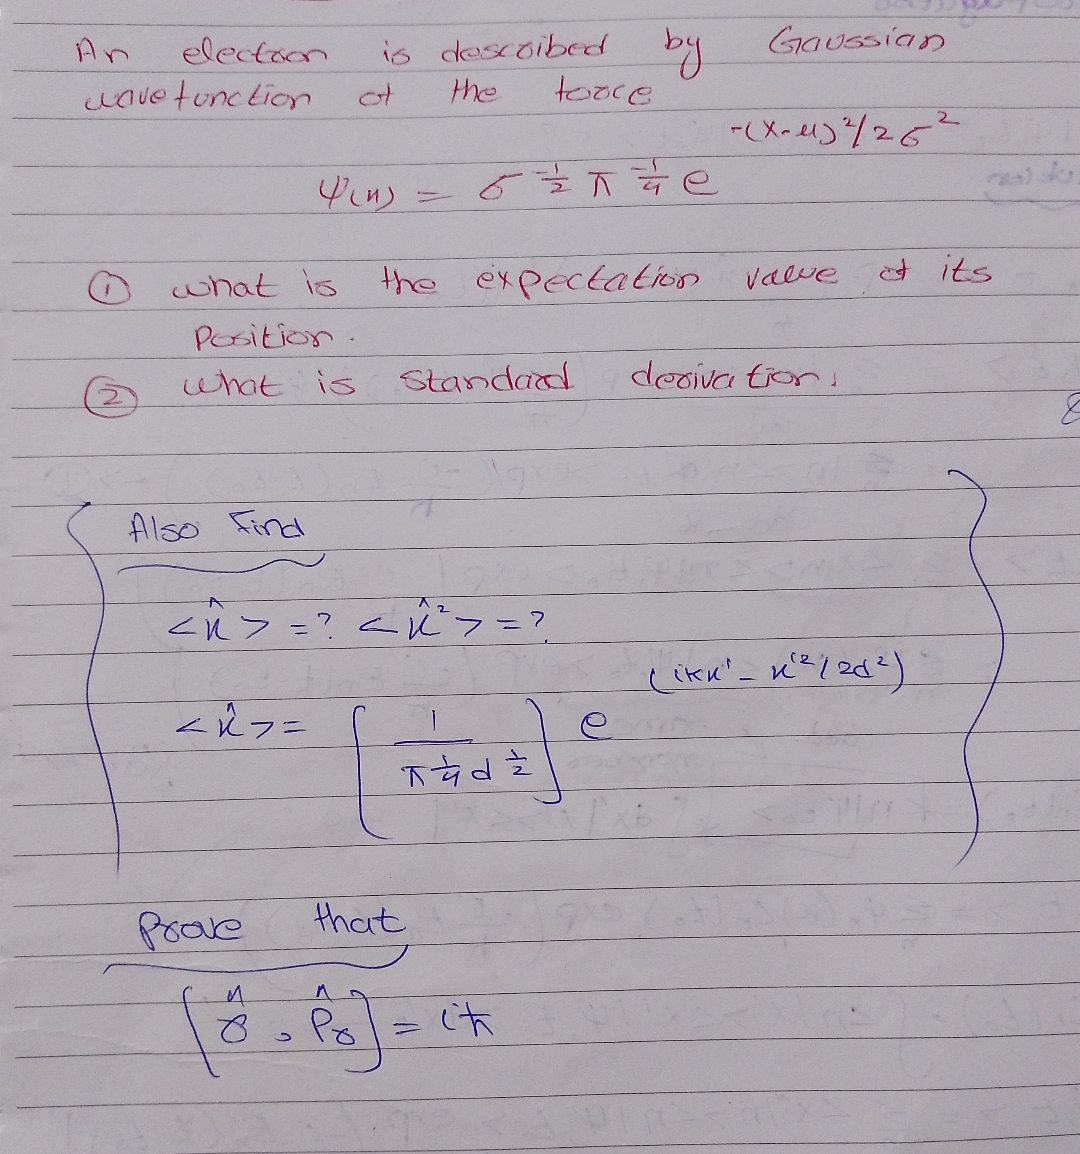 An electron is described by Gaussian
wave function of the force
ψ(x) = σ^-1/2 π^-1/4 e^-(x-μ)²/2σ²
① what is the expectation value of its
Position.
② what is standard derivation.
Also Find
<x̂> = ? <x̂²> = ?
<x̂> = [1 / π^1/4 d^1/2] e^(ikx' - x'²/2d²)
Prove that
[r̂, P̂r] = iħ